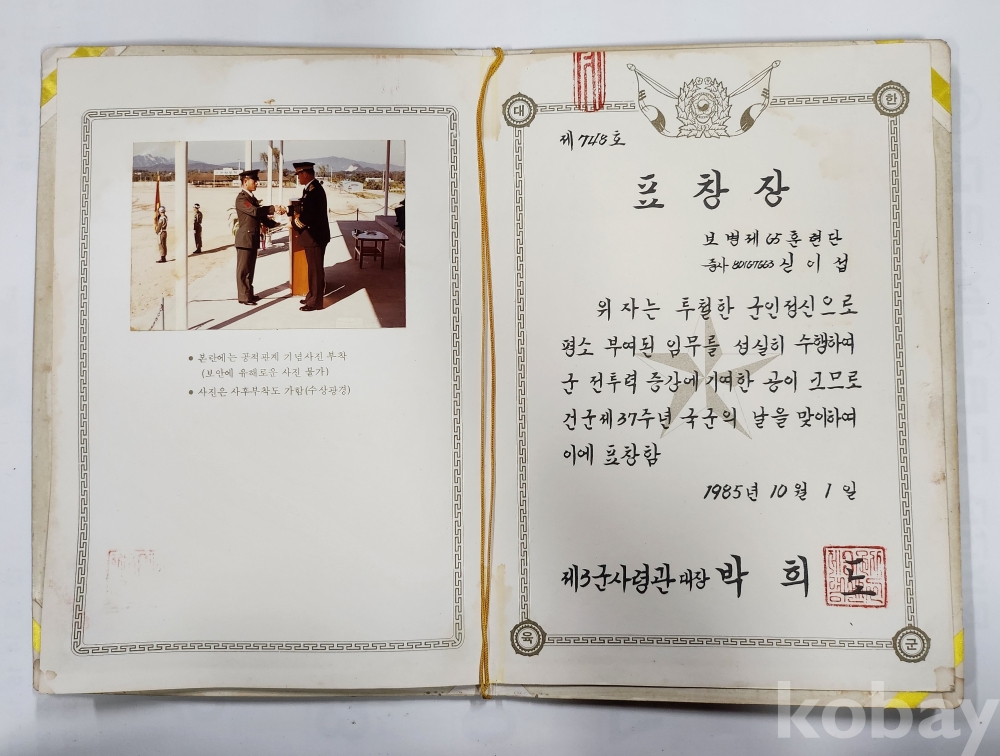 ● 본란에는 공적관계 기념사진 부착
(보안에 유해로운 사진 불가)
● 사진은 사후부착도 가함(수상광경)
대 한
제 748 호
표 창 장
보병제 65 훈련단
중사 80167663 신 이 섭
위 자는 투철한 군인정신으로
평소 부여된 임무를 성실히 수행하여
군 전투력 증강에 기여한 공이 크므로
건군제 37주년 국군의 날을 맞이하여
이에 표창함
1985년 10월 1일
제3군사령관 대장 박 희 도
육 군
kobay